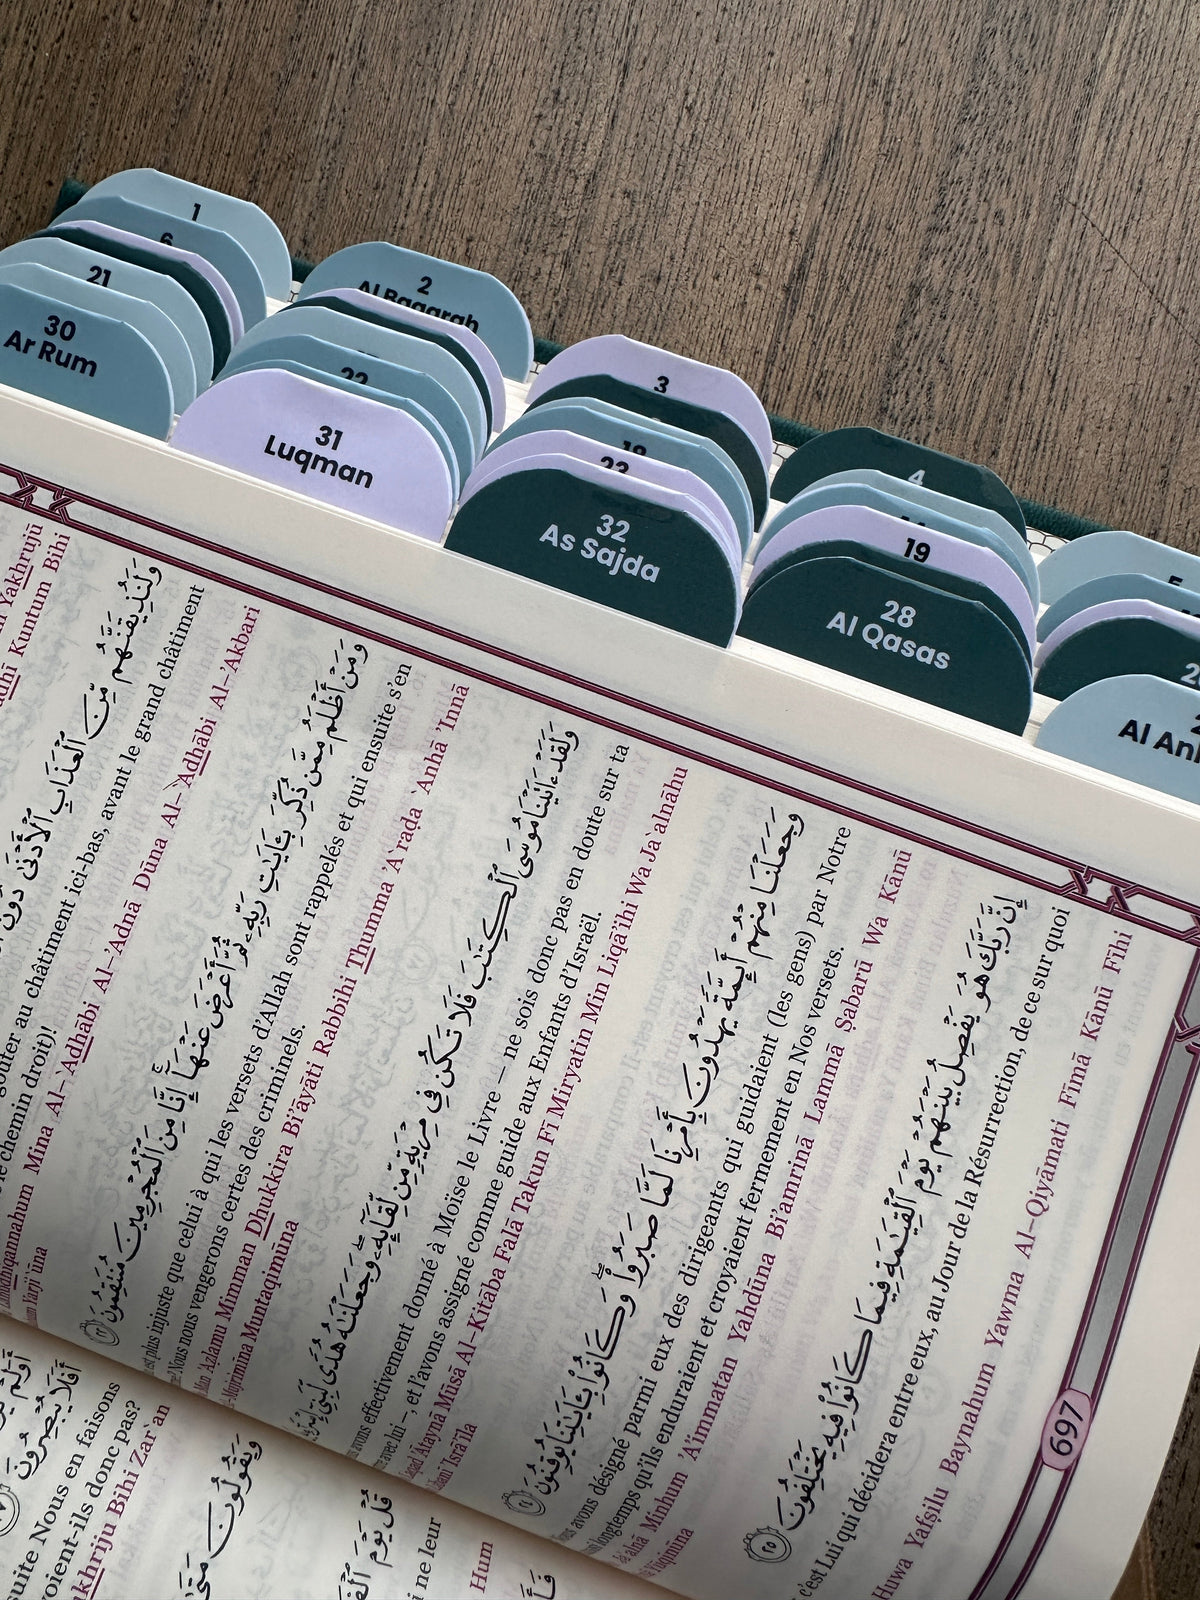 1
6
21
30
Ar Rum
2
Al Baqarah
22
31
Luqman
3
19
23
32
As Sajda
4
19
28
Al Qasas
5
Al An
Yakhrujū
Kuntum Bihi
وَلَنُذِيقَنَّهُم مِّنَ ٱلْعَذَابِ ٱلْأَدْنَىٰ دُونَ
goûter au châtiment ici-bas, avant le grand châtiment
le chemin droit)!
Mina Al-`Adhābi Al-'Adnā Dūna Al-`Adhābi Al-'Akbari
وَمَنْ أَظْلَمُ مِمَّن ذُكِّرَ بِـَٔايَـٰتِ رَبِّهِۦ ثُمَّ أَعْرَضَ عَنْهَآ ۚ إِنَّا مِنَ ٱلْمُجْرِمِينَ مُنتَقِمُونَ ٢٢
est plus injuste que celui à qui les versets d'Allah sont rappelés et qui ensuite s'en
Nous nous vengerons certes des criminels.
'Aẓlamu Mimman Dhukkira Bi'āyāti Rabbihi Thumma 'A`raḍa `Anhā 'Innā
Mujrimīna Muntaqimūna
وَلَقَدْ ءَاتَيْنَا مُوسَى ٱلْكِتَـٰبَ فَلَا تَكُن فِى مِرْيَةٍ مِّن لِّقَآئِهِۦ ۖ وَجَعَلْنَـٰهُ هُدًى لِّبَنِىٓ
avons effectivement donné à Moïse le Livre – ne sois donc pas en doute sur ta
avec lui –, et l'avons assigné comme guide aux Enfants d'Israël.
'Ātaynā Mūsá Al-Kitāba Falā Takun Fī Miryatin Min Liqā'ihi Wa Ja`alnāhu
'Isrā'īla
وَجَعَلْنَا مِنْهُمْ أَئِمَّةً يَهْدُونَ بِأَمْرِنَا لَمَّا صَبَرُوا۟ ۖ وَكَانُوا۟ بِـَٔايَـٰتِنَا يُوقِنُونَ ٢٤
avons désigné parmi eux des dirigeants qui guidaient (les gens) par Notre
longtemps qu'ils enduraient et croyaient fermement en Nos versets.
Minhum 'A'immatan Yahdūna Bi'amrinā Lammā Ṣabarū Wa Kānū
Yūqinūna
إِنَّ رَبَّكَ هُوَ يَفْصِلُ بَيْنَهُمْ يَوْمَ ٱلْقِيَـٰمَةِ فِيمَا كَانُوا۟ فِيهِ يَخْتَلِفُونَ ٢٥
c'est Lui qui décidera entre eux, au Jour de la Résurrection, de ce sur quoi
Huwa Yafṣilu Baynahum Yawma Al-Qiyāmati Fīmā Kānū Fīhi
697
أَفَلَا يُبْصِرُونَ
suite Nous en faisons
voient-ils donc pas?
Bihi Zar`an
وَيَقُولُونَ مَتَىٰ
قُلْ يَوْمَ
ne leur
Hum